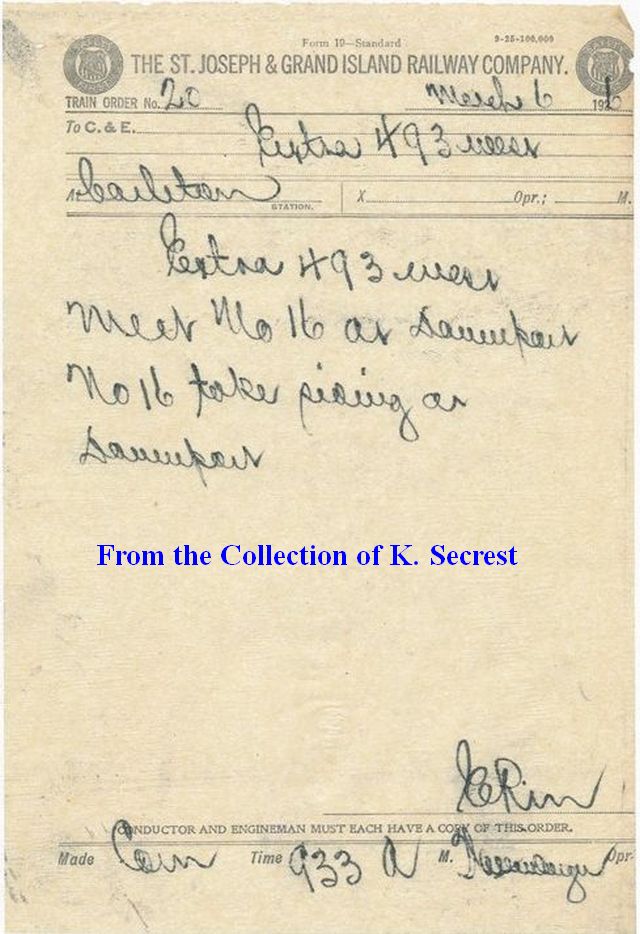 Form 19—Standard 9-25-100,000
THE ST. JOSEPH & GRAND ISLAND RAILWAY COMPANY.
TRAIN ORDER No. 20 March 6 1926
To C. & E. Extra 493 west
At Carleton STATION. X Opr.; M.
Extra 493 west
Meet No 16 at Davenport
No 16 take siding at
Davenport
From the Collection of K. Secrest
CONDUCTOR AND ENGINEMAN MUST EACH HAVE A COPY OF THIS ORDER.
Made Com Time 933 A M. Opr.